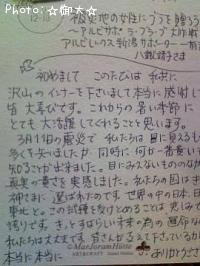 Photo:☆御大☆
12-1
被災地の女性にブラを贈ろう
〜アルビサポ ラ・ブラブ大作戦
アルビレックス新潟サポーター一同
八鍬靖子さま
初めまして このたびは 私共に
沢山のインナーを下さいまして本当に感謝し
皆大喜びです。これからの暑い季節に
とても大活躍してくれることと思います。
3月11日の震災で 私たちは目に見えるもの
多くを失いましたが 同時に何か一番重い
知ることが出来ました。目にみえないものの
真実の重さを実感しました。私たちの国は
神さまに 選ばれたのです 世界の中の日本、日
東北と。この試練を受けとめることは 悲しみで
誇りです。きっとすばらしい未来の為の運命な
私たちは大丈夫です。皆さんが支えて下さっているから
本当に本当に
ありがとうござ
MaxforumHiuno